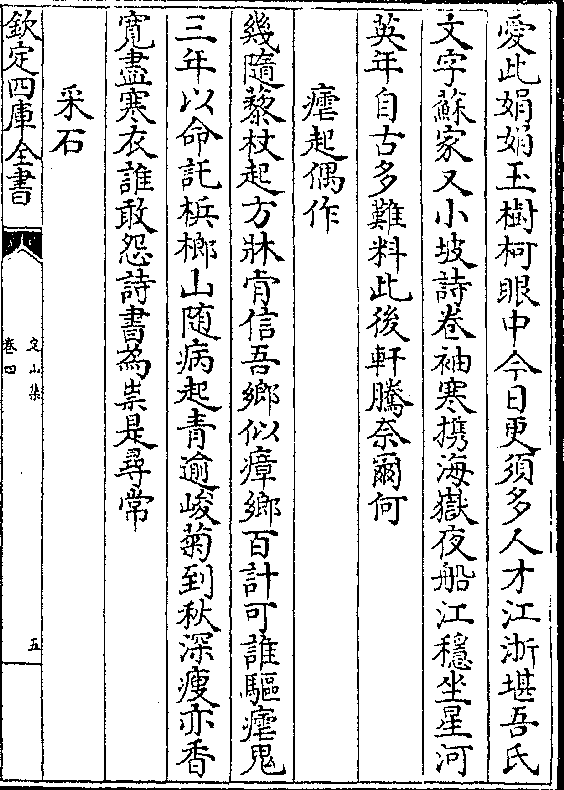 愛此娟娟玉樹柯眼中今日更須多人才江浙堪吾氏
文字蘇家又小坡詩卷袖寒携海嶽夜船江穩坐星河
英年自古多難料此後軒騰奈爾何
瘧起偶作
幾隨藜杖起方牀肯信吾鄉似瘴鄉百計可誰驅瘧鬼
三年以命託梹榔山随病起青逾峻菊到秋深痩亦香
寛盡寒衣誰敢怨詩書為祟是尋常
采石
欽定四庫全書
文山集
卷四
五